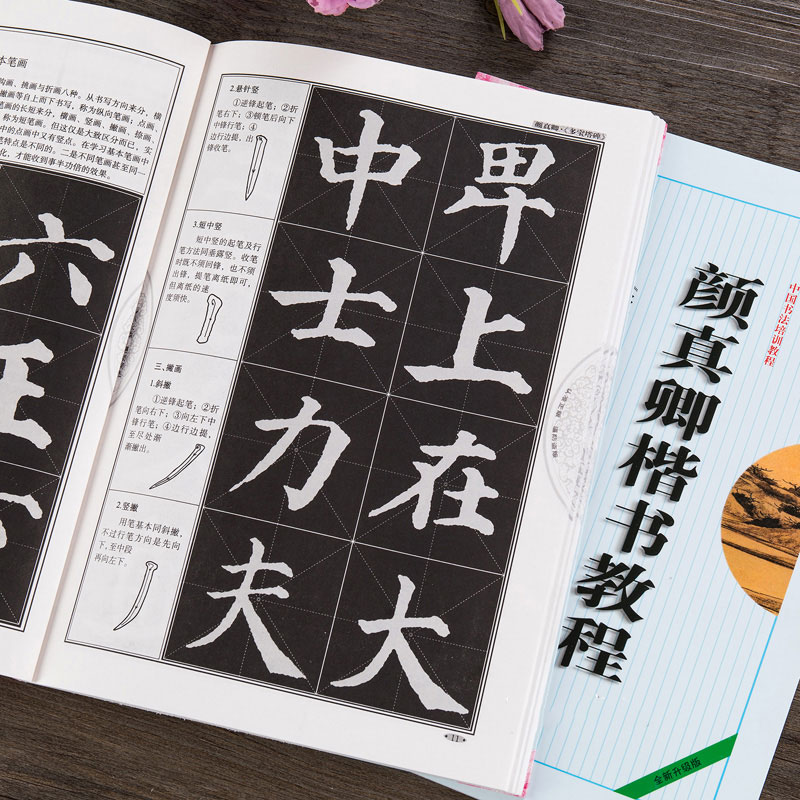 本笔画
钩画、挑画与折画八种。从书写方向来分，横
撇画等自上而下书写，称为纵向笔画；点画、
笔画的长短来分，横画、竖画、撇画、捺画
，称为短笔画。但这仅是大致区分而已，实
中的点画中又有竖点。在学习基本笔画中
范特点是不同的。二是不同笔画甚至同一
化，才能收到事半功倍的效果。
六
王
下
2.悬针竖
①逆锋起笔；②折
笔右下；③顿笔后向下
中锋行笔；④
边行边提，出
锋收笔。
3.短中竖
短中竖的起笔及行
笔方法同垂露竖。收笔
时既不须回锋，也不须
出锋，提笔离纸即可，
但离纸的速
度须快。
三、撇画
1.斜撇
①逆锋起笔；②折
笔向右下；③向左下中
锋行笔；④边行边提，
至尽处渐
渐撇出。
2.竖撇
用笔基本同斜撇，
不过行笔方向是先向
下，至中段
再向左下。
颜真卿·《多宝塔碑》
中 卑
士 上
力 在
夫 大
11
中国书法培训教程
颜真卿楷书教程
全新升级版